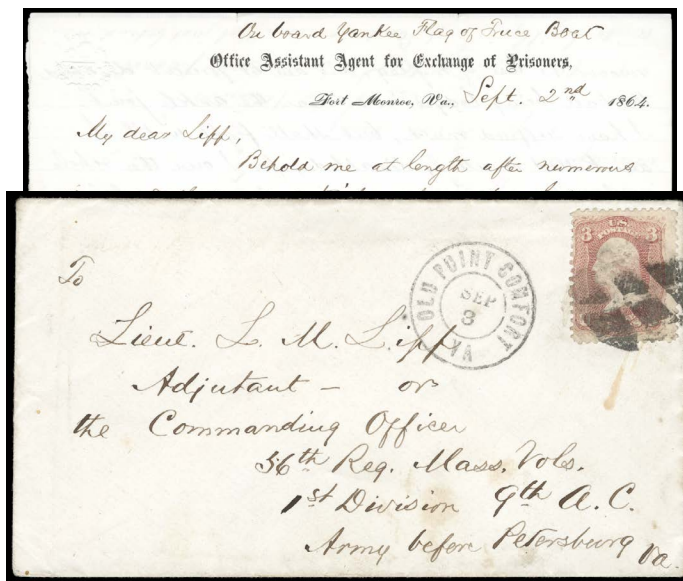 On board Yankee Flag of Truce Boat
Office Assistant Agent for Exchange of Prisoners,
Fort Monroe, Va., Sept. 2nd 1864.
My dear Lipp,
Behold me at length after numerous
U.S.
POSTAGE
3 3
OLD POINT COMFORT
SEP
3
VA
To
Lieut. L. M. Lipp
Adjutant – or
the Commanding Officer
56th Reg. Mass. Vols.
1st Division 9th A. C.
Army before Petersburg
Va.